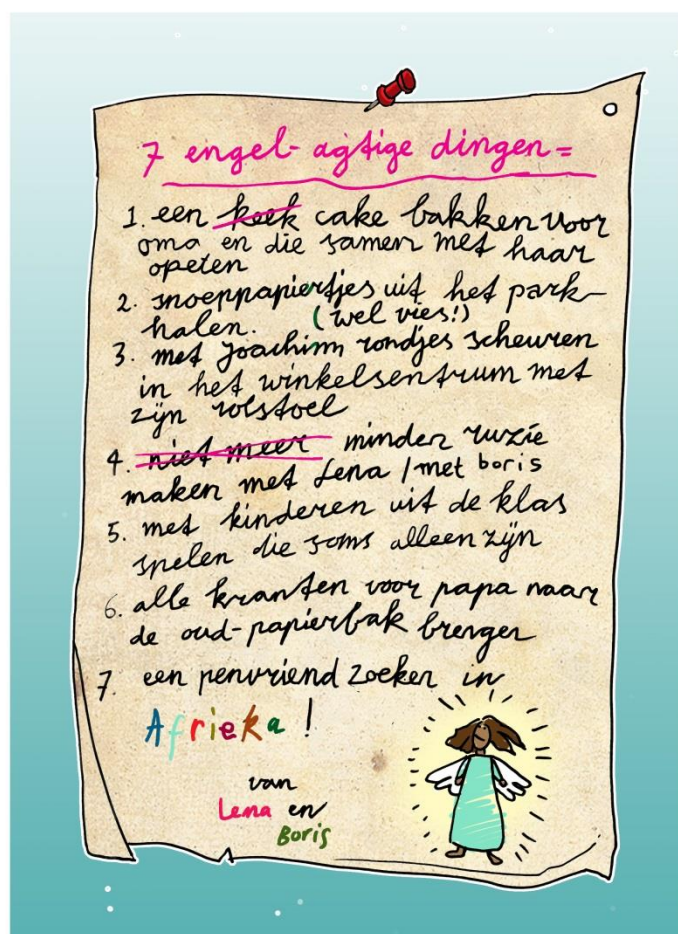 7 engel-agtige dingen =
1. een keek cake bakken voor
oma en die samen met haar
opeten
2. snoeppapiertjes uit het park
halen. (wel vies!)
3. met Joachim rondjes scheuren
in het winkelsentrum met
zijn rolstoel
4. niet meer minder ruzie
maken met Lena / met boris
5. met kinderen uit de klas
spelen die soms alleen zijn
6. alle kranten voor papa naar
de oud-papierbak brengen
7. een penvriend zoeken in
Afrieka!
van
Lena en
Boris